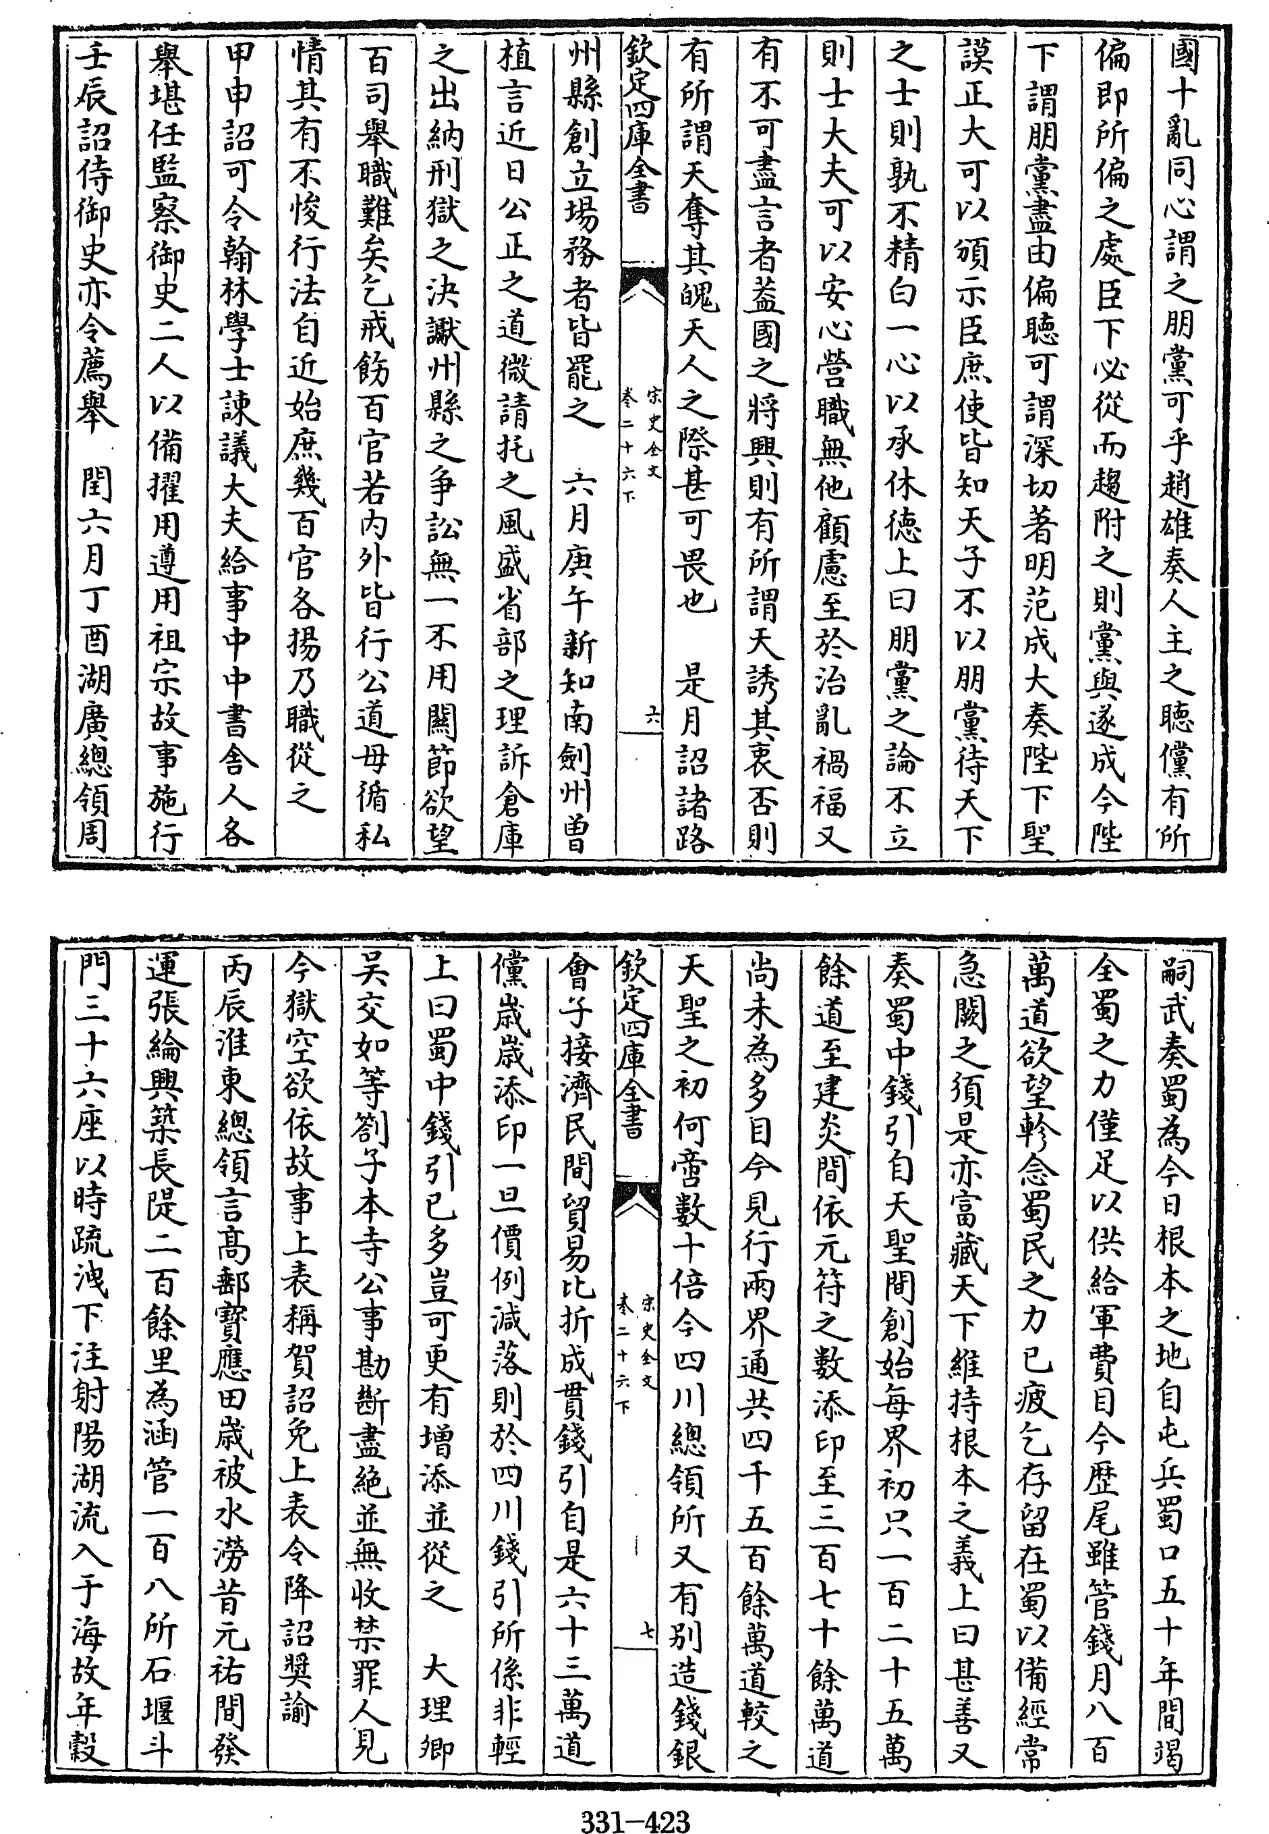 國十亂同心謂之朋黨可乎趙雄奏人主之聴儻有所
偏即所偏之處臣下必從而趨附之則黨與遂成今陛
下謂朋黨盡由偏聴可謂深切著明范成大奏陛下聖
謨正大可以頒示臣庶使皆知天子不以朋黨待天下
之士則孰不精白一心以承休徳上曰朋黨之論不立
則士大夫可以安心營職無他顧慮至於治亂禍福又
有不可盡言者葢國之將興則有所謂天誘其衷否則
有所謂天奪其魄天人之際甚可畏也 是月詔諸路
欽定四庫全書 宋史全文 卷二十六下 六
州縣創立場務者皆罷之 六月庚午新知南劍州曽
植言近日公正之道微請托之風盛省部之理訴倉庫
之出納刑獄之決讞州縣之争訟無一不用闗節欲望
百司舉職難矣乞戒飭百官若内外皆行公道毋循私
情其有不悛行法自近始庶幾百官各揚乃職從之
甲申詔可令翰林學士諫議大夫給事中中書舎人各
舉堪任監察御史二人以備擢用遵用祖宗故事施行
壬辰詔侍御史亦令薦舉 閏六月丁酉湖廣總領周
嗣武奏蜀為今日根本之地自屯兵蜀口五十年間竭
全蜀之力僅足以供給軍費目今歴尾雖管錢月八百
萬道欲望軫念蜀民之力已疲乞存留在蜀以備經常
急闕之須是亦富藏天下維持根本之義上曰甚善又
奏蜀中錢引自天聖間創始每界初只一百二十五萬
餘道至建炎間依元符之數添印至三百七十餘萬道
尚未為多目今見行兩界通共四千五百餘萬道較之
天聖之初何啻數十倍今四川總領所又有别造錢銀
欽定四庫全書 宋史全文 卷二十六下 七
會子接濟民間貿易比折成貫錢引自是六十三萬道
儻歳歳添印一旦價例減落則於四川錢引所係非輕
上曰蜀中錢引已多豈可更有增添並從之 大理卿
吴交如等劄子本寺公事勘斷盡絶並無收禁罪人見
今獄空欲依故事上表稱賀詔免上表令降詔奬諭
丙辰淮東總領言髙郵寳應田歳被水澇昔元祐間發
運張綸興築長隄二百餘里為涵管一百八所石堰斗
門三十六座以時疏洩下注射陽湖流入于海故年穀
331-423